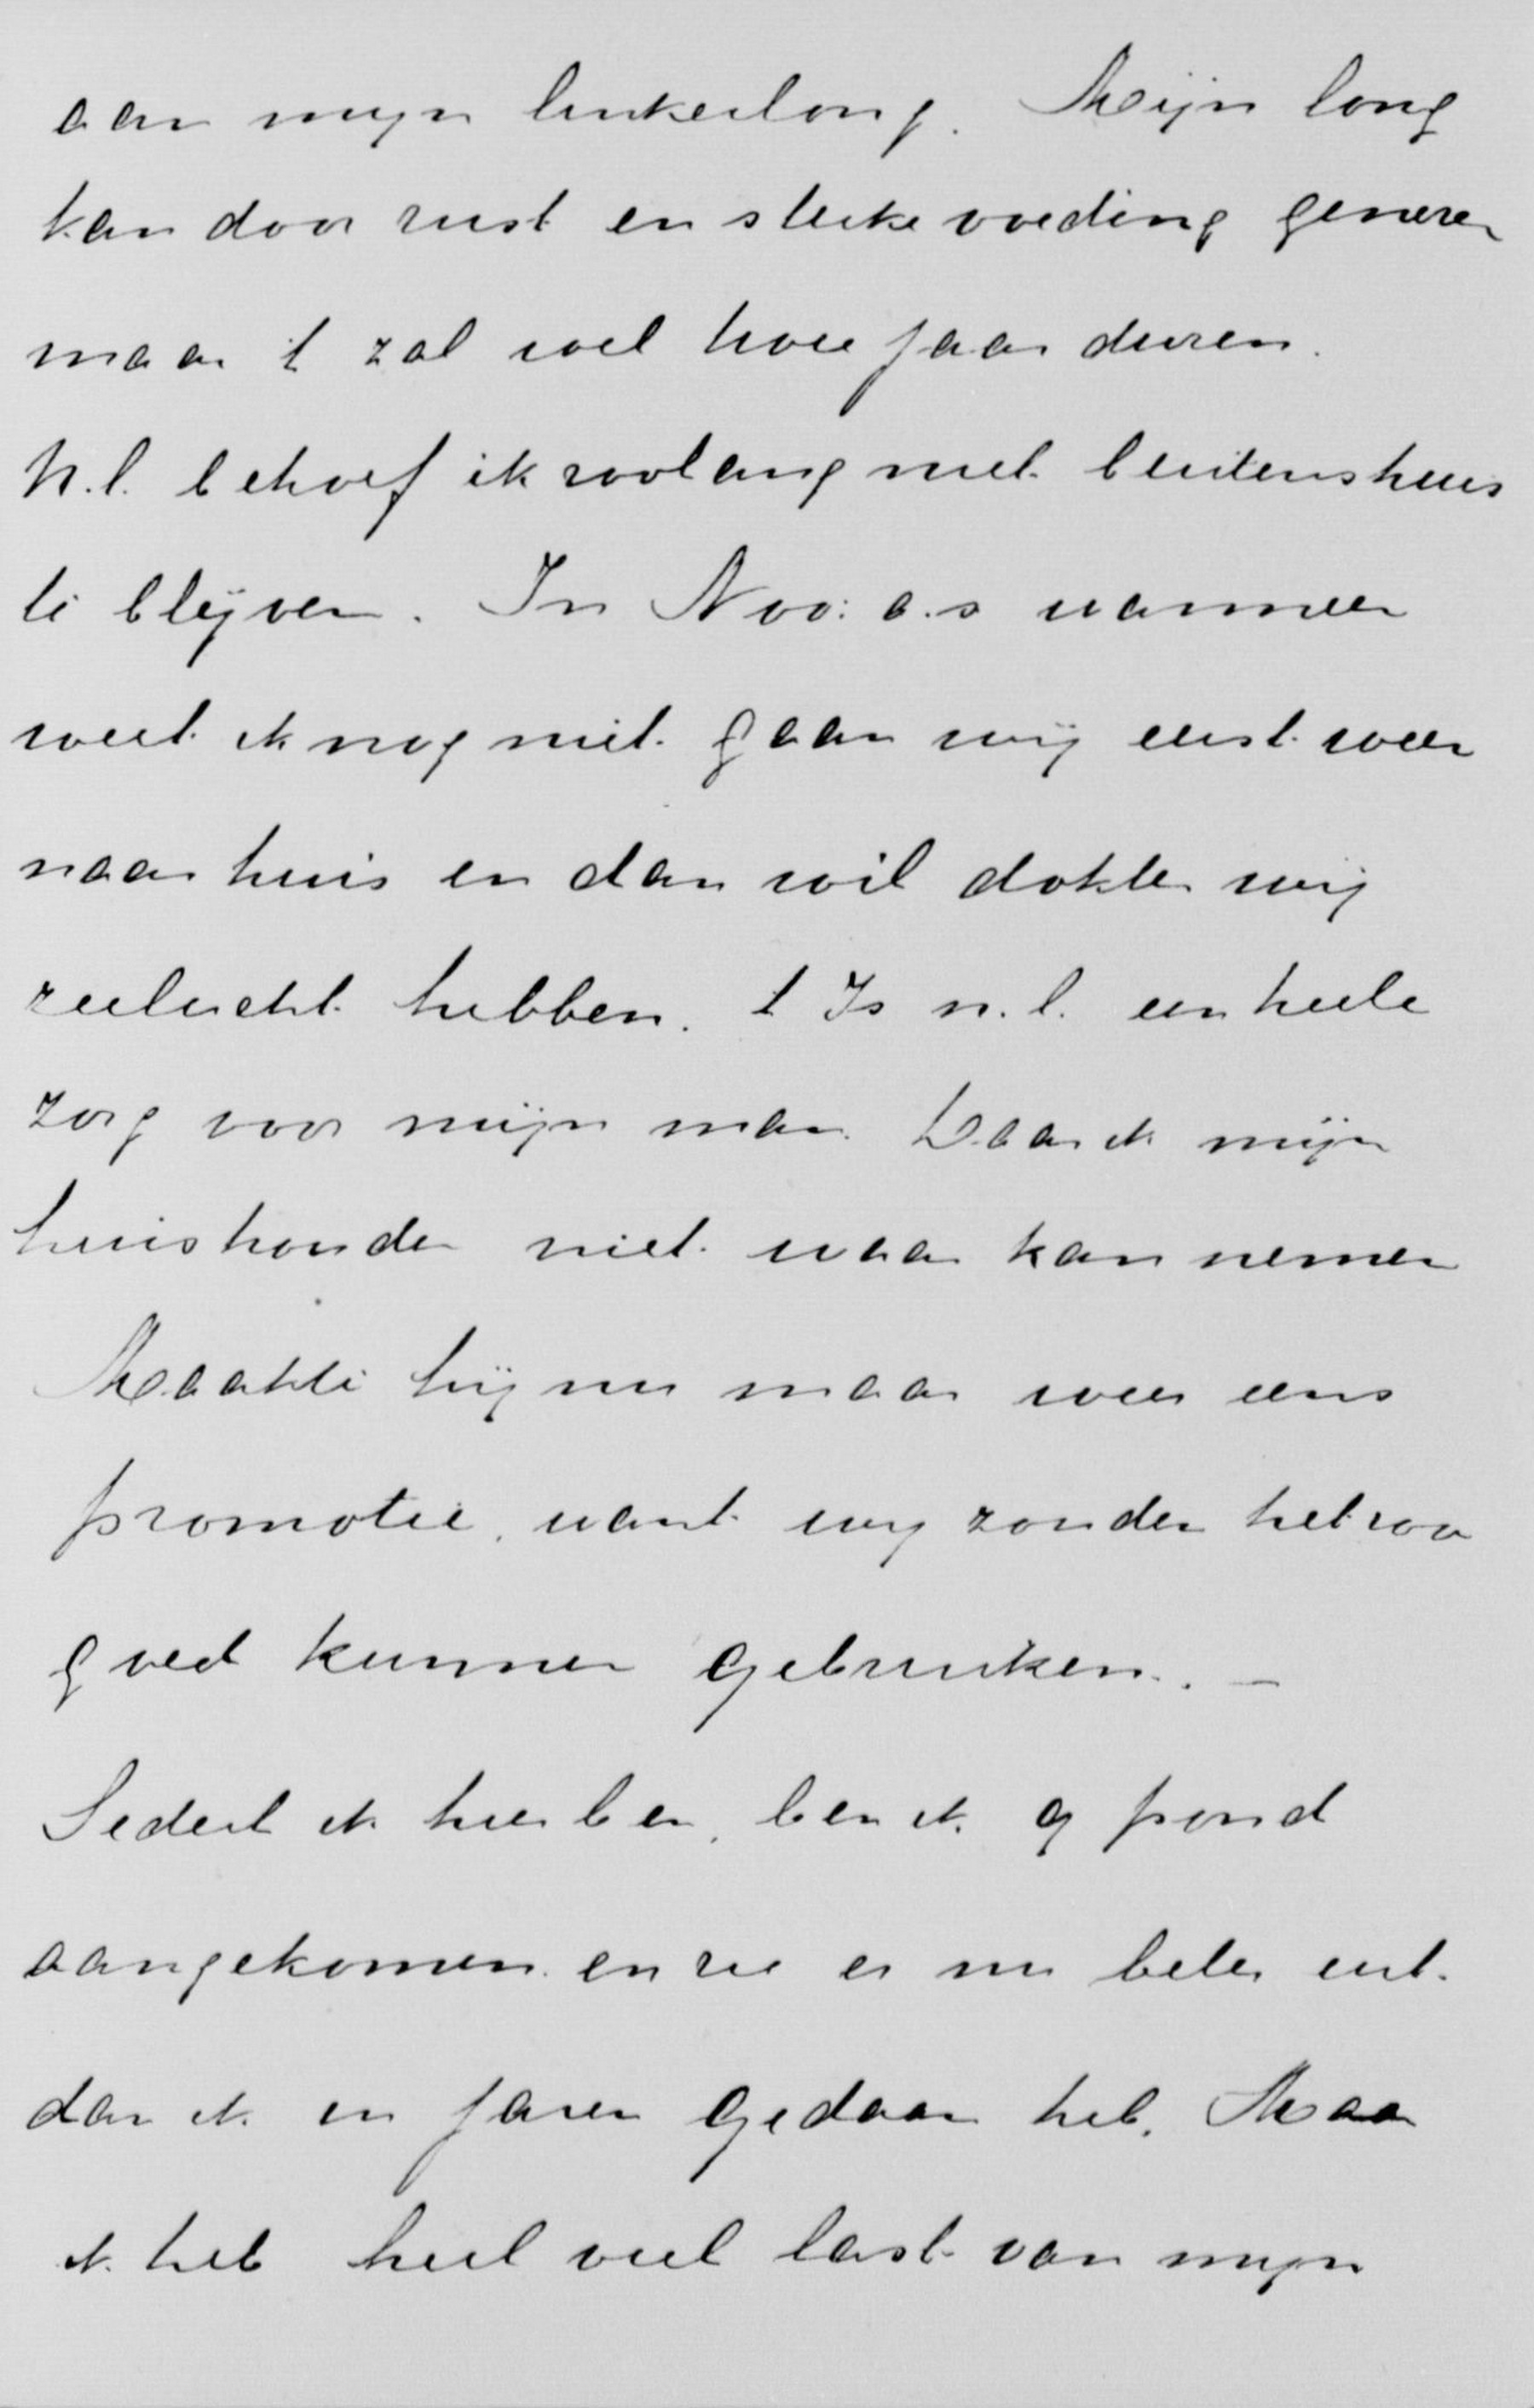 aan mijn linkerlong. Mijn long
kan door rust en sterke voeding genezen
maar t zal wel twee jaar duren.
N.l. behoef ik zoolang niet buitenshuis
te blijven. In Nov: a.s wanneer
weet ik nog niet gaan wij eerst weer
naar huis en dan wil dokter mij
zeelucht hebben. t Is n.l. een heele
zorg voor mijn man. Daar ik mijn
huishouden niet waar kan nemen
Maakte hij nu maar weer eens
promotie, want wij zouden het zoo
goed kunnen gebruiken. –
Sedert ik hier ben, ben ik 9 pond
aangekomen en zie er nu beter uit.
dan ik in jaren gedaan heb. Maar
ik heb heel veel last van mijn